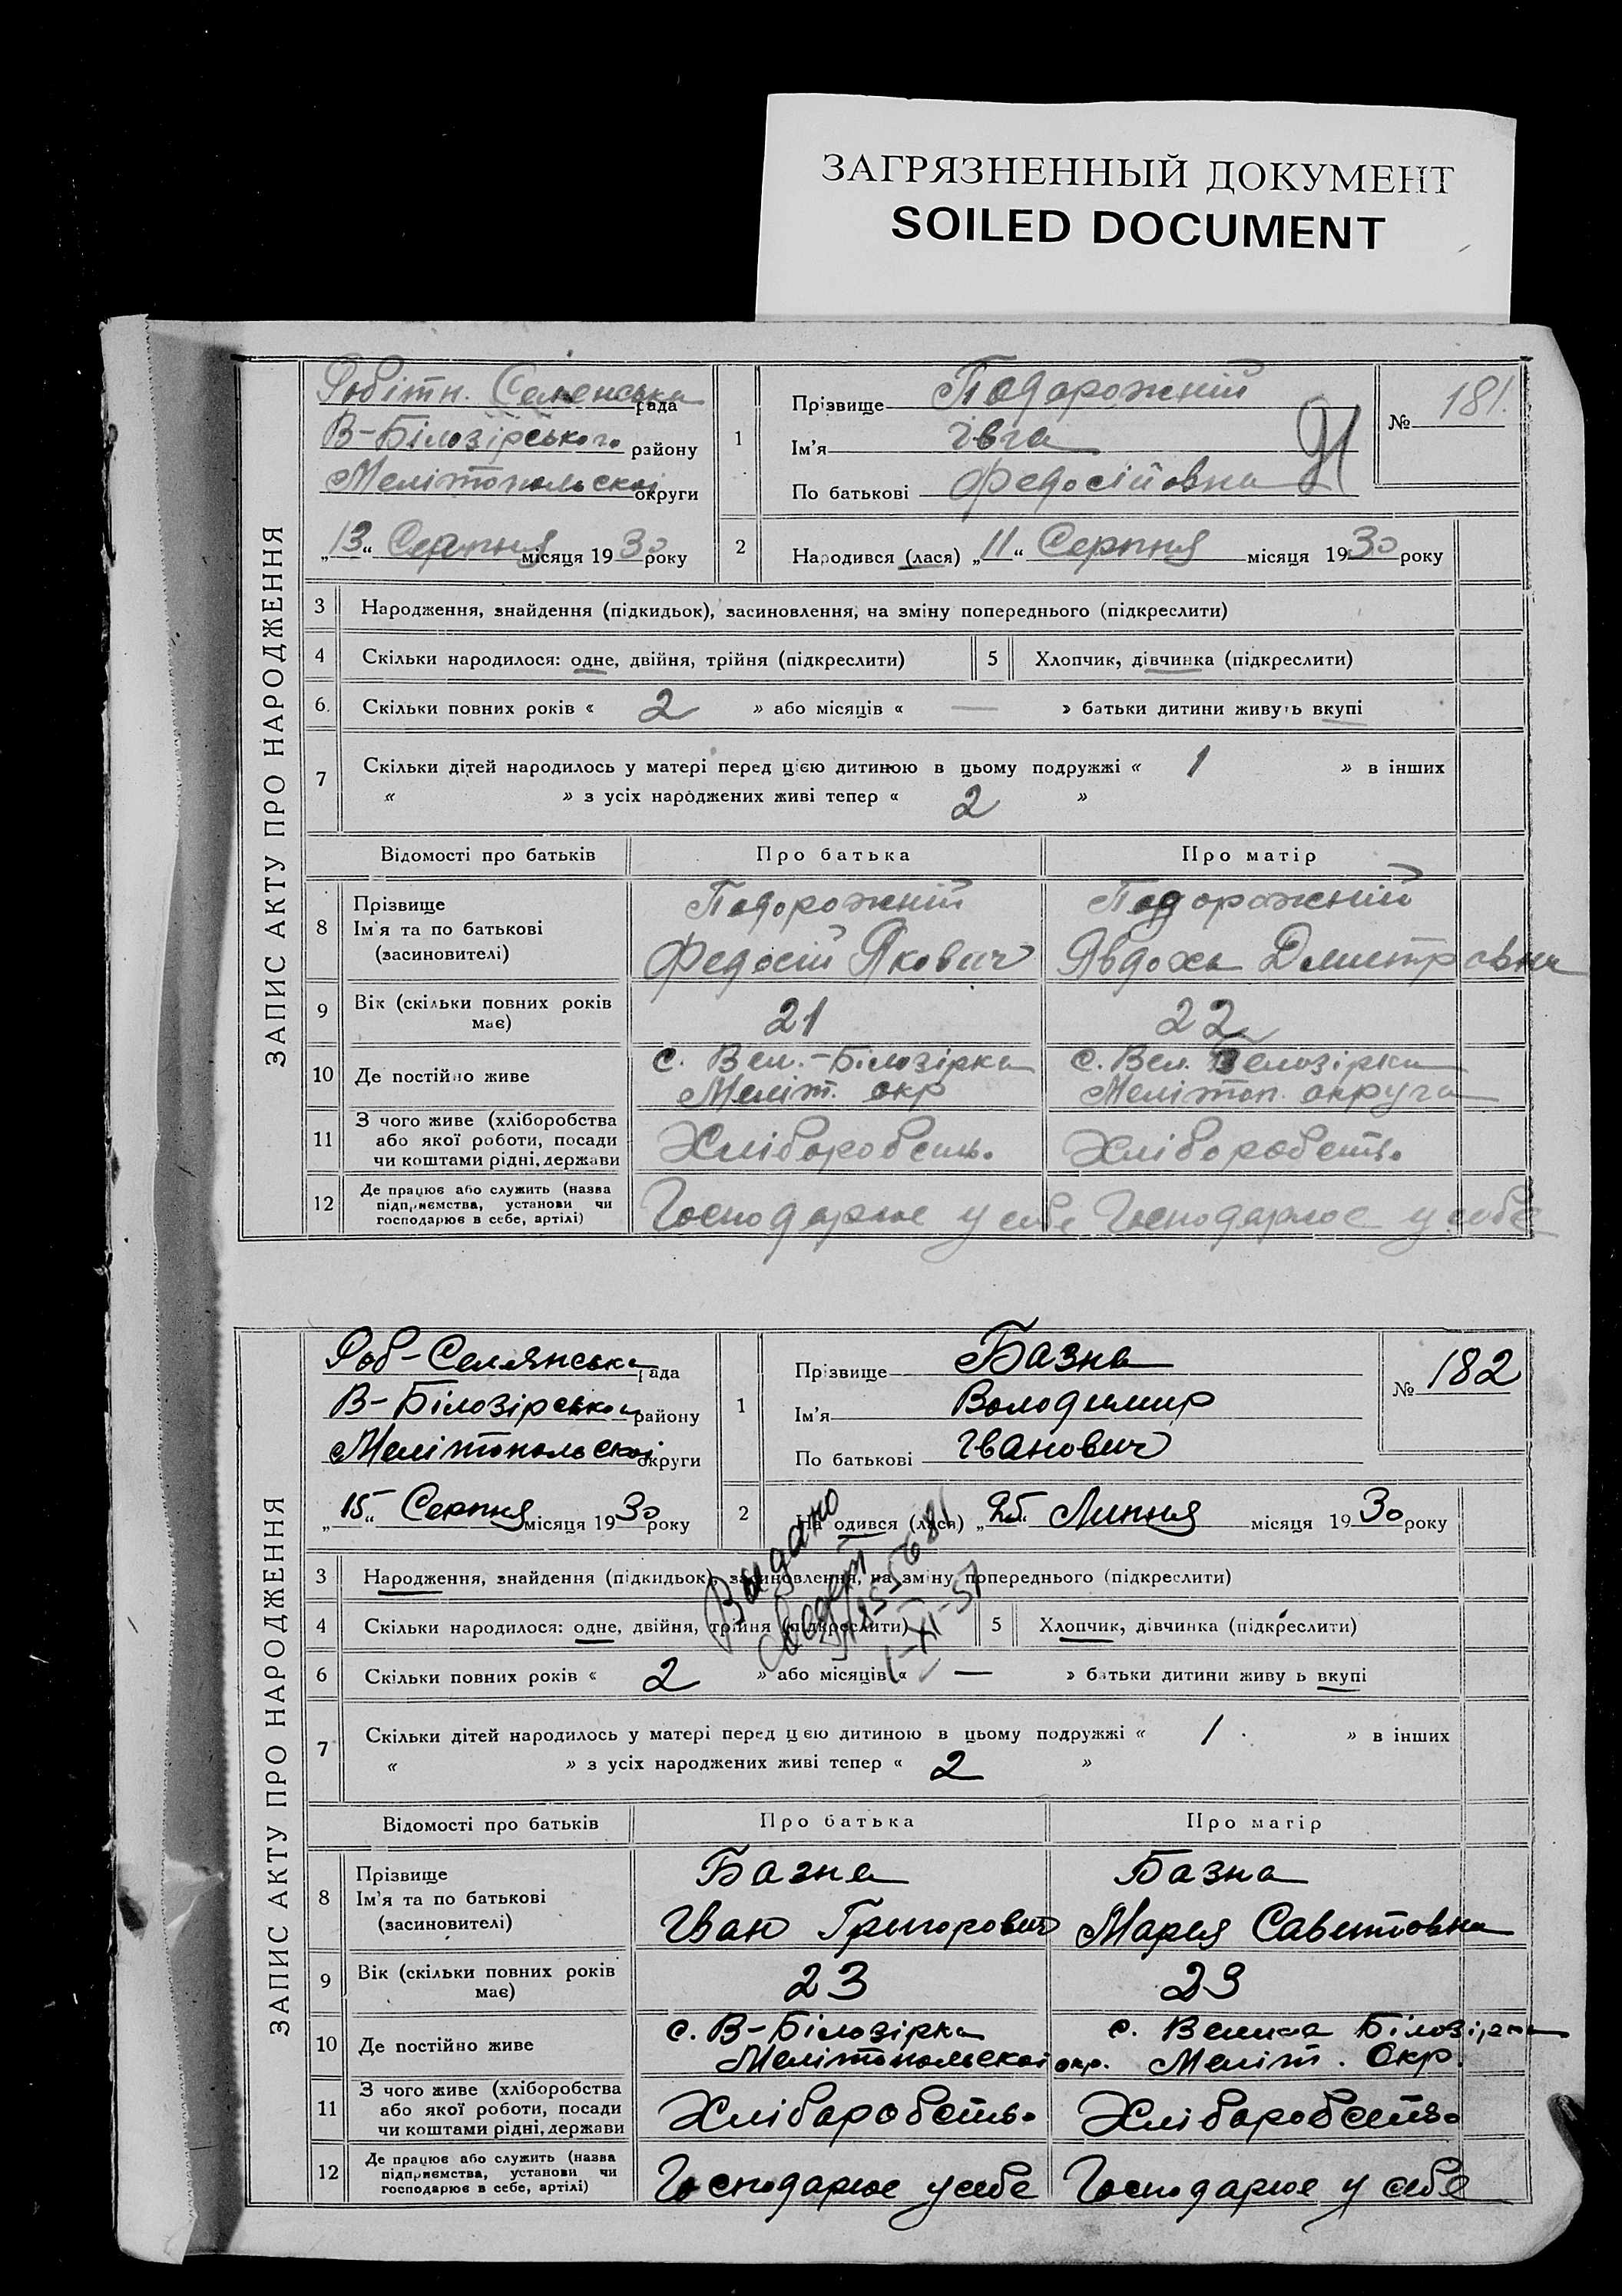 ЗАГРЯЗНЕННЫЙ ДОКУМЕНТ
SOILED DOCUMENT
ЗАПИС АКТУ ПРО НАРОДЖЕННЯ
Робітн. Селенська рада
В-Білозірського району
Мелітопольскоі округи
„13“ Серпня місяця 1930 року
1
Прізвище Подорожній
Ім'я Івга
По батькові Федосійовна
№ 181.
2
Народився (лася) „11“ Серпня місяця 1930 року
3 Народження, знайдення (підкидьок), засиновлення, на зміну попереднього (підкреслити)
4 Скільки народилося: одне, двійня, трійня (підкреслити) 5 Хлопчик, дівчинка (підкреслити)
6. Скільки повних років « 2 » або місяців « — » батьки дитини живуть вкупі
7 Скільки дітей народилось у матері перед цією дитиною в цьому подружжі « 1 » в інших
« » з усіх народжених живі тепер « 2 »
Відомості про батьків Про батька Про матір
8 Прізвище
Ім'я та по батькові
(засиновителі)
Подорожній
Федосій Якович
Подорожній
Явдоха Дмитровна
9 Вік (скільки повних років
має)
21 22
10 Де постійно живе
с. Вел.-Білозірка
Меліт. окр
с. Вел. Белозірка
Мелітоп. округа
11 З чого живе (хліборобства
або якої роботи, посади
чи коштами рідні, держави
Хліборобств. Хліборобств.
12 Де працює або служить (назва
підприємства, установи чи
господарює в себе, артілі)
Господарює у себе Господарює у себе
ЗАПИС АКТУ ПРО НАРОДЖЕННЯ
Роб-Селянська рада
В-Білозірського району
Мелітопольскоі округи
„15“ Серпня місяця 1930 року
1
Прізвище Базна
Ім'я Володимир
По батькові Іванович
№ 182
2
Народився (лася) „25“ Липня місяця 1930 року
3 Народження, знайдення (підкидьок), засиновлення, на зміну попереднього (підкреслити)
4 Скільки народилося: одне, двійня, трійня (підкреслити) 5 Хлопчик, дівчинка (підкреслити)
6 Скільки повних років « 2 » або місяців « — » батьки дитини живу ь вкупі
Видано
7 Скільки дітей народилось у матері перед цією дитиною в цьому подружжі « 1 » в інших
« » з усіх народжених живі тепер « 2 »
Відомості про батьків Про батька Про матір
8 Прізвище
Ім'я та по батькові
(засиновителі)
Базна
Іван Григорович
Базна
Мария Савитовна
9 Вік (скільки повних років
має)
23 23
10 Де постійно живе
с. В-Білозірка
Мелітопольскоі окр.
с. Велика Білозірка
Меліт. Окр.
11 З чого живе (хліборобства
або якої роботи, посади
чи коштами рідні, держави
Хліборобств. Хліборобств.
12 Де працює або служить (назва
підприємства, установи чи
господарює в себе, артілі)
Господарює у себе Господарює у себе